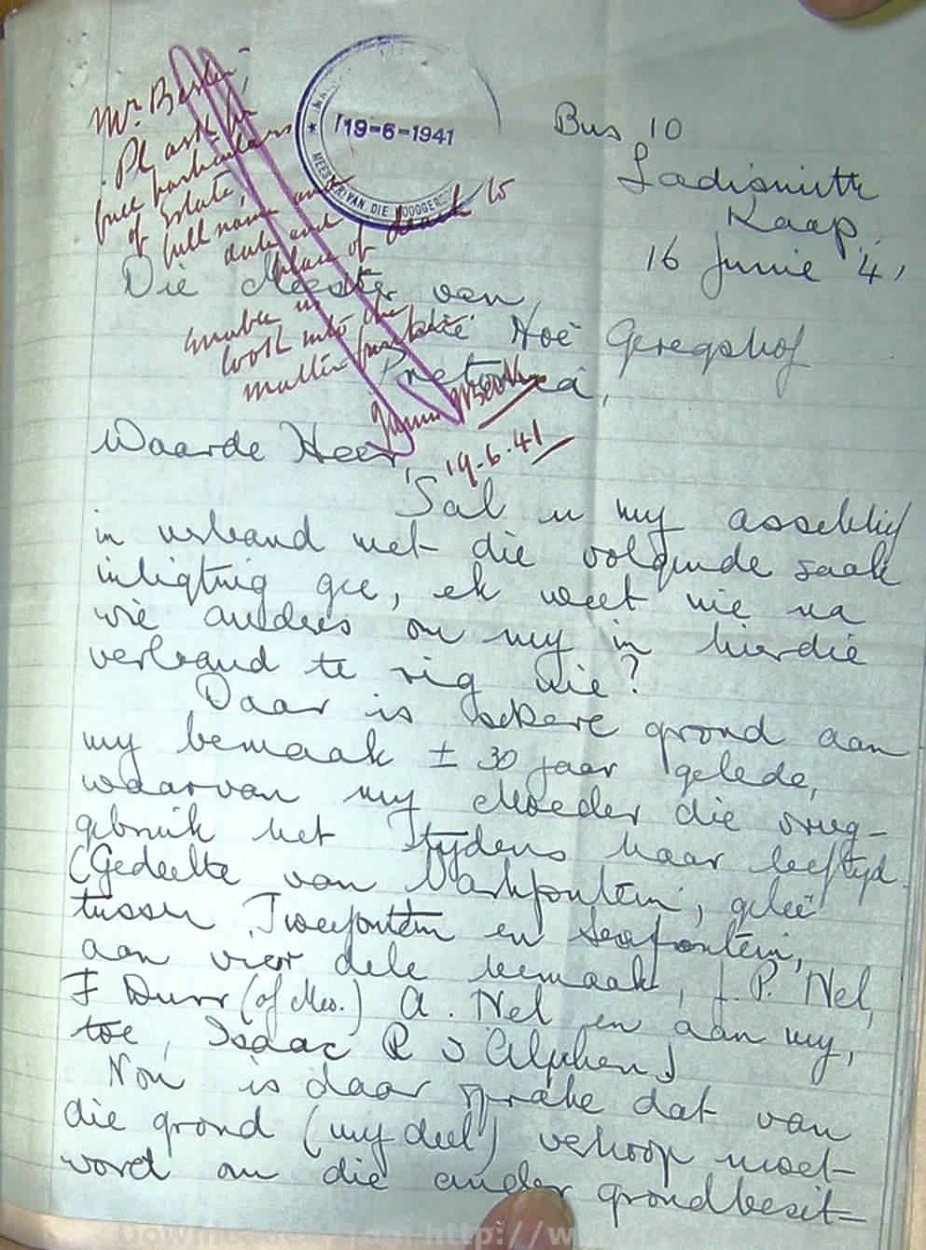 Mr.
Pl ask for
full particulars
of Estate,
full name and
date and
place of death to
enable us
look into the
matter further.
19.6.41
19-6-1941
MEESTER VAN DIE HOOGGER
Bus 10
Ladismith
Kaap.
16 Junie '41
Die Meester van
die Hoë Geregshof
Pretoria,
Waarde Heer,
Sal u my asseblief
in verband met die volgende saak
inligting gee, ek weet nie na
wie anders om my in hierdie
verband te rig nie?
Daar is sekere grond aan
my bemaak ± 30 jaar gelede,
waarvan my Moeder die vrug-
gebruik het tydens haar leeftyd.
(Gedeelte van Varkfontein, geleë
tussen Tweefontein en Seefontein,
aan vier dele bemaak, J. P. Nel,
F Durr (of Mev.) A. Nel en aan my,
toe, Isaac R v Alphen)
Nou is daar sprake dat van
die grond (my deel) verkoop moet
word om die ander grondbesit-